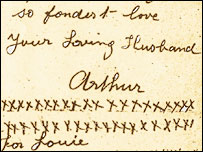 so fondest love
Your Loving Husband
Arthur
xxxxxxxxxxxxxxxxxxxx
xxxxxxxxxxxxxxxxxxx
for Louie